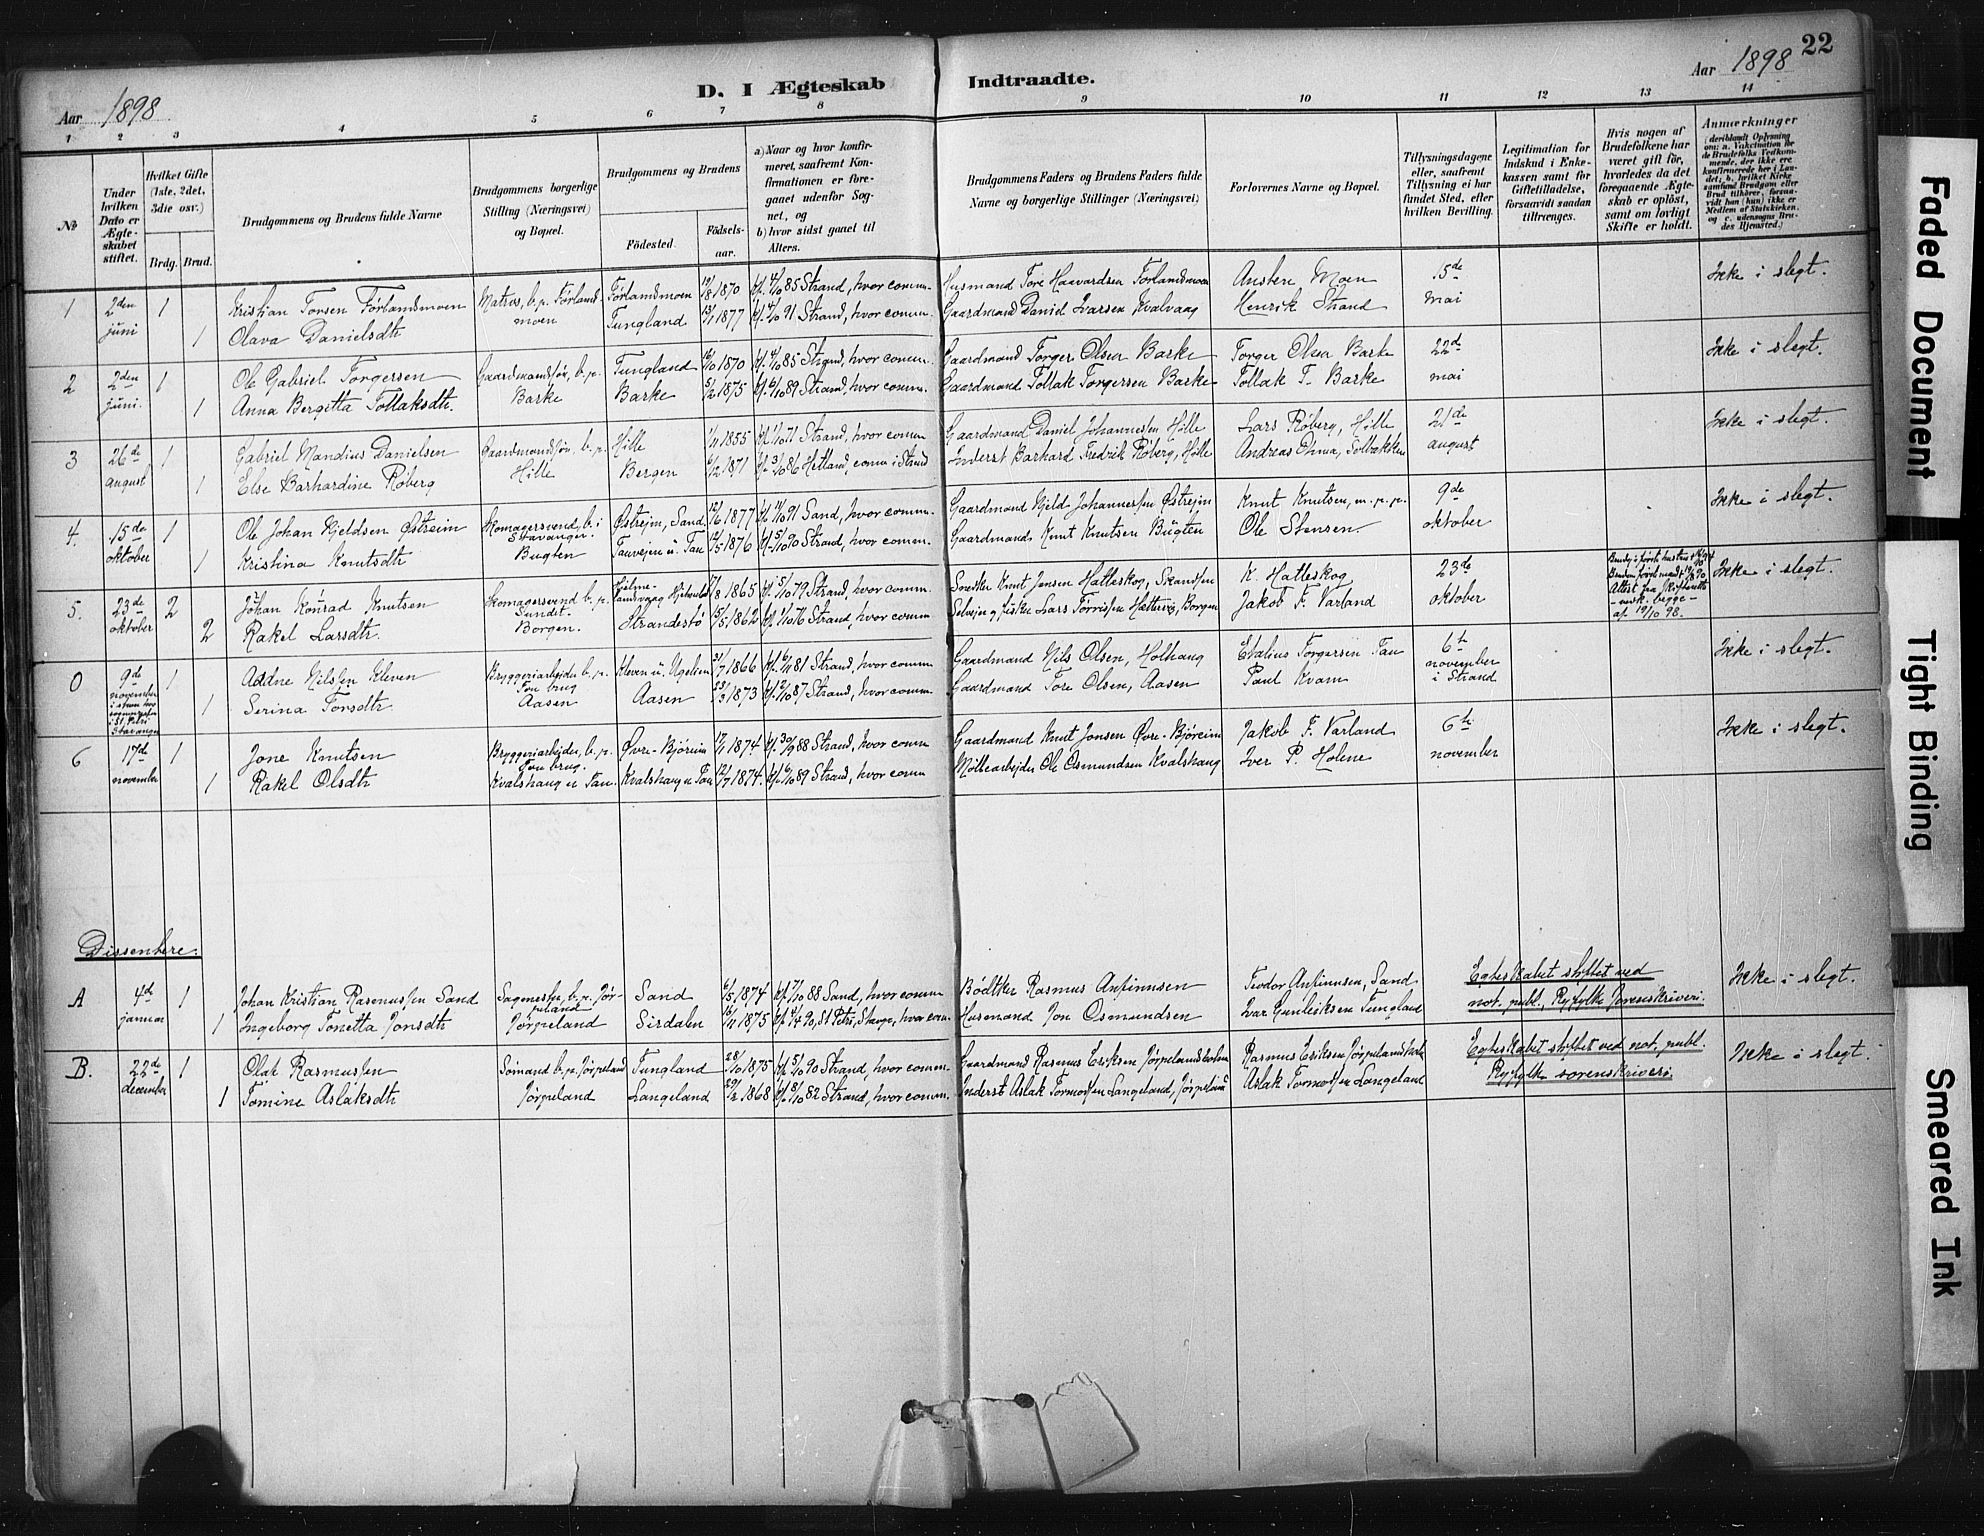 Aar 1898
D. I Ægteskab Indtraadte.
Aar 1898
22
1 2 3 4 5 6 7 8 9 10 11 12 13 14
№
Under hvilken Dato er Ægteskabet stiftet.
Hvilket Gifte (1ste, 2det, 3die osv.)
Brdg. Brud.
Brudgommens og Brudens fulde Navne
Brudgommens borgerlige Stilling (Næringsvei) og Bopæl.
Brudgommens og Brudens
Fødested.
Fødselsaar.
a) Naar og hvor konfirmeret, saafremt Konfirmationen er foregaaet udenfor Sognet, og
b) hvor sidst gaaet til Alters.
Brudgommens Faders og Brudens Faders fulde Navne og borgerlige Stillinger (Næringsvei)
Forlovernes Navne og Bopæl.
Tillysningsdagene eller, saafremt Tillysning ei har fundet Sted, efter hvilken Bevilling.
Legitimation for Indskud i Enkekassen samt for Giftetilladelse, forsaavidt saadan tiltrænges.
Hvis nogen af Brudefolkene har været gift før, hvorledes da det foregaaende Ægteskab er opløst, samt om lovligt Skifte er holdt.
Anmærkninger
(deriblandt Oplysning om: a. Vakcination for de Brudefolks Vedkommende, der ikke ere konfirmerede her i Landet; b. hvilket Kirkesamfund Brudgom eller Brud tilhører, forsaavidt han (hun) ikke er Medlem af Statskirken, og c. udensogns Brudes Hjemsted.)
1 2den juni 1 Kristian Torsen Førlandsmoen Matros, b. p. Førlandsmoen Førlandsmoen 19/8 1870 kf. 4/10 85 Strand, hvor comm. Husmand Tore Haavardsen Førlandsmoen Austen Moen 5de mai Ikke i slegt.
1 Olava Danielsdtr Tungland 13/1 1877 kf. 4/10 91 Strand, hvor comm. Gaardmand Daniel Ivarsen Kvalvaag Henrik Strand
2 2den juni. 1 Ole Gabriel Torgersen Gaardmandssøn, b. p. Barke Tungland 16/10 1870 kf. 4/10 85 Strand, hvor comm. Gaardmand Torger Olsen Barke Torger Olsen Barke 22d mai Ikke i slegt.
1 Anna Bergitta Tollaksdtr. Barke 5/2 1875 kf. 6/10 89 Strand, hvor comm. Gaardmand Tollak Torgersen Barke Tollak T. Barke
3 26de august 1 Gabriel Mandius Danielsen Gaardmandssøn, b. p. Hille Hille 1/11 1855 kf. 1/10 71 Strand, hvor comm Gaardmand Daniel Johannessen Hille Lars Røberg, Hille 21de august Ikke i slegt.
1 Else Barhardine Røberg Bergen 6/12 1871 kf. 3/10 86 Hetland, comm i Strand Inderst Barhard Fredrik Røberg, Hille Andreas
4. 15de oktober 1 Ole Johan Kjeldsen Østreim Skomagersvend, b. i Stavanger. Østrejm, Sand 12/6 1877 kf. 11/10 91 Sand, hvor comm. Gaardmand Kjeld Johannessen Østrejm Knut Knutsen, m. p. p. 9de oktober Ikke i slegt.
1 Kristina Knutsdtr Bugten Tauvejen u. Tau 14/5 1876 kf. 5/10 90 Strand, hvor comm. Gaardmand Knut Knutsen Bugten Ole Stensen
5. 23de oktober 2 Johan Konrad Knutsen Skomagersvend b. p. Sundet. 1865 kf. 5/10 79 Strand, hvor comm. Snedker Knut Jensen Hatleskog, K. Hatleskog 23de oktober Ikke i slegt.
2 Rakel Larsdtr. Borgen. Strandestø 15/5 1862 kf. 1/10 76 Strand, hvor comm Selvejer og fisker Lars Tørrissen Hettervig, Borgen Jakob F. Varland
Attest fra Skifteretten begge af 19/10 98.
0 9d november Stavanger 1 Addne Nilssen Kleven Bryggeriarbejder b. p. Tou brug Kleven u. 31/7 1866 kf. 6/11 81 Strand, hvor comm Gaardmand Nils Olsen, Holhaug Edalius Torgersen Tau 6te november i Strand Ikke i slegt.
1 Serina Torsdtr Aasen Aasen 23/3 1873 kf. 2/10 87 Strand, hvor comm. Gaardmand Tore Olsen, Aasen Paul Kvam
6 17de november 1 Jone Knutsen Bryggeriarbejder, b. p. Tou brug. Øvre-Bjøreim 17/1 1874 kf. 30/9 88 Strand, hvor comm Gaardmand Knut Jonsen Øvre-Bjøreim Jakob F. Varland 6te november Ikke i slegt.
1 Rakel Olsdtr Kvalshaug u Tau. Kvalshaug u Tau 12/7 1874. kf. 6/10 89 Strand, hvor comm Møllearbejder Ole Osmundsen Kvalshaug Iver P. Holene
Dissentere.
A 4d januar 1 Johan Kristian Rasmussen Sand Sagmester, b. p. Jørpeland Sand 6/5 1874 kf. 7/10 88 Sand, hvor comm Bødker Rasmus Anfinnsen Teodor Anfinnsen, Sand Egteskabet stiftet ved not. publ., Ryfylke sorenskriveri. Ikke i slegt.
1 Ingeborg Tonetta Jonsdtr Jørpeland Sirdalen 15/11 1875 kf. 14/4 90, St. Petri, Stavgr, hvor com. Husmand Jon Osmundsen Ivar Gunleiksen Tungland
B. 22de december 1 Olak Rasmussen Sømand b. p. Jørpeland Tungland 28/10 1875 kf. 5/10 90 Strand, hvor comm. Gaardmand Rasmus Eriksen Jørpelandsholm Rasmus Eriksen Jørpelandsholm Egteskabet stiftet ved not. publ. Ryfylke sorenskriveri. Ikke i slegt.
1 Tomine Aslaksdtr Jørpeland Langeland 29/2 1868 kf. 8/10 82 Strand, hvor comm. Inderst Aslak Tormodsen Langeland, Jørpeland Aslak Tormodsen Langeland
Faded Document
Tight Binding
Smeared Ink